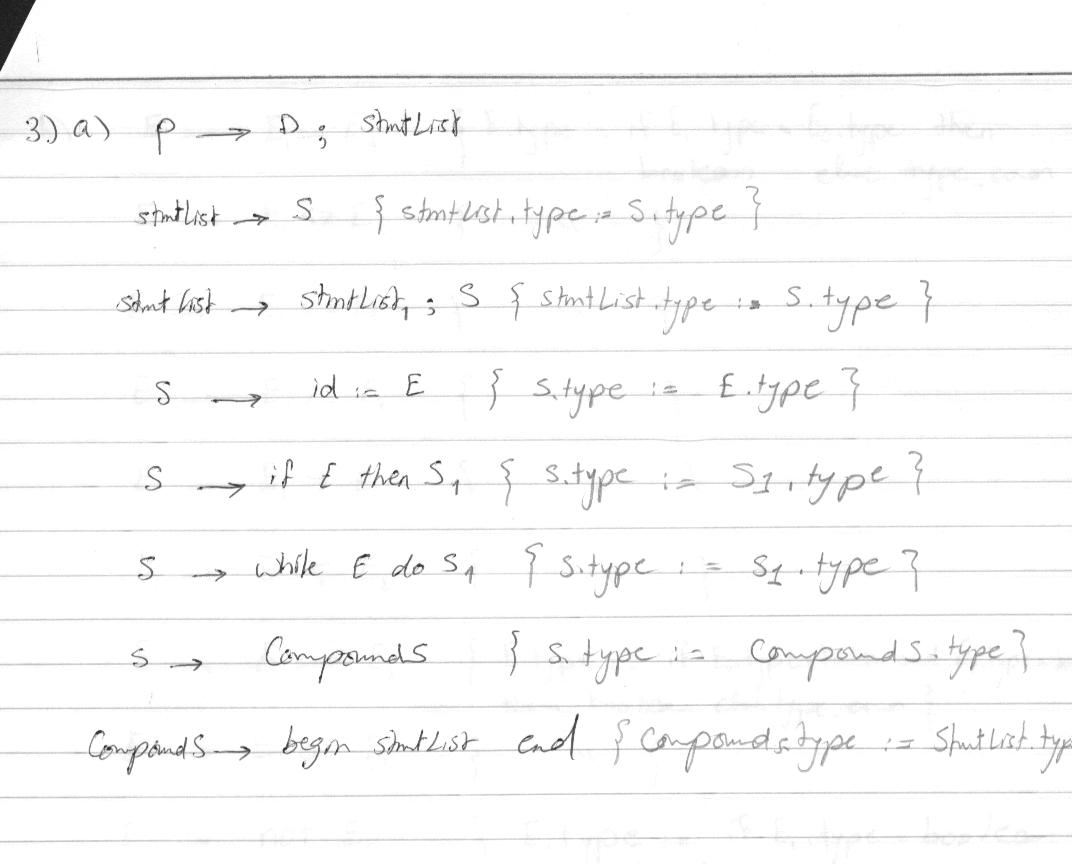 3.) a) P → D ; stmtList
stmtlist → S { stmtList.type := S.type }
stmt list → stmtList₁ ; S { stmtList.type := S.type }
S → id := E { S.type := E.type }
S → if E then S₁ { S.type := S1.type }
S → while E do S₁ { S.type := S1.type }
S → CompoundS { S.type := CompoundS.type }
CompoundS → begin stmtList end { CompoundS.type := StmtList.typ